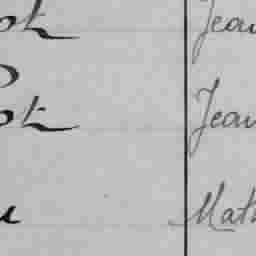 ot Jean
ot Jean
u Math